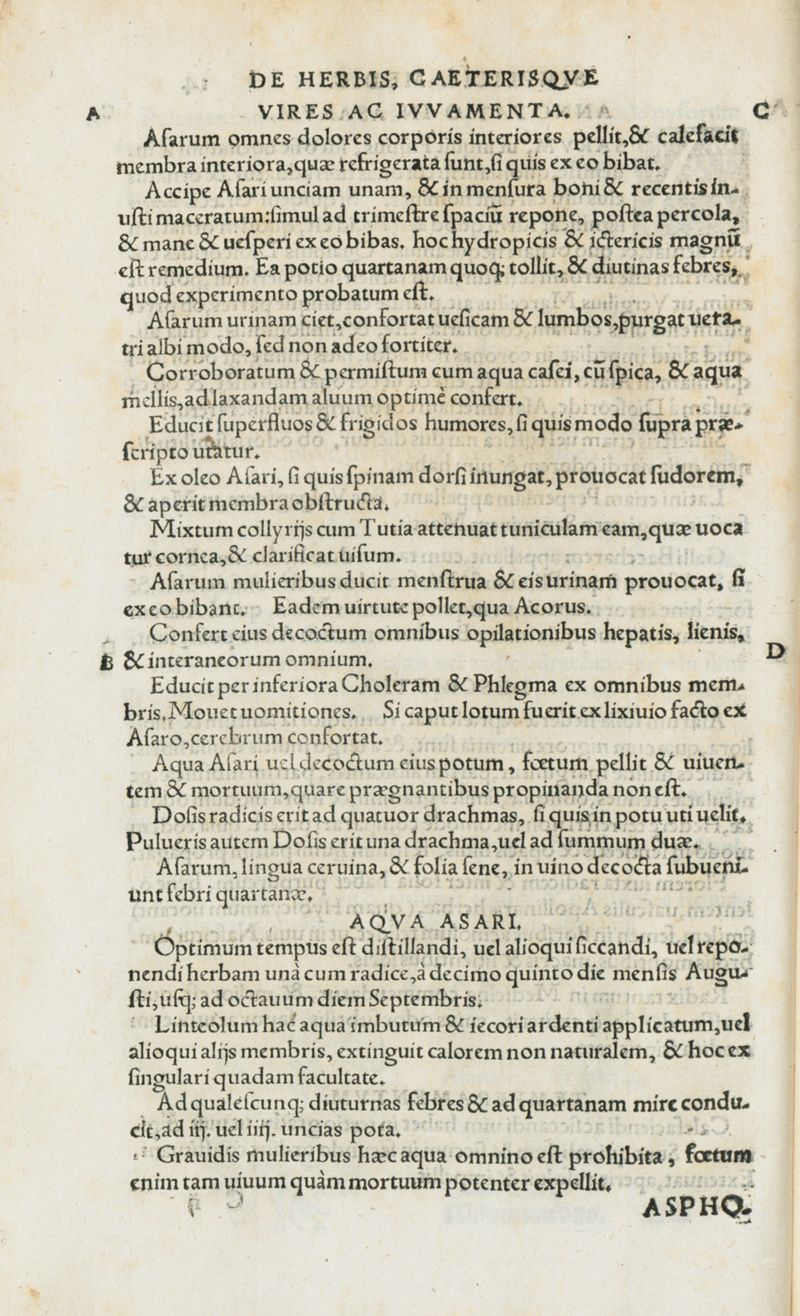 DE HERBIS, CAETERISQVE
A VIRES AC IVVAMENTA. C
Aſarum omnes dolores corporis interiores pellit,& calefacit
membra interiora,quæ refrigerata ſunt,ſi quis ex eo bibat.
Accipe Aſari unciam unam, & in menſura boni & recentis in-
uſti maceratum:ſimul ad trimeſtre ſpaciũ repone, poſtea percola,
& mane & ueſperi ex eo bibas. hoc hydropicis & ictericis magnũ
eſt remedium. Ea potio quartanam quoq; tollit, & diutinas febres,
quod experimento probatum eſt.
Aſarum urinam ciet,confortat ueſicam & lumbos,purgat uera-
tri albi modo, ſed non adeo fortiter.
Corroboratum & permiſtum cum aqua caſei, cũ ſpica, & aqua
mellis,ad laxandam aluum optimè confert.
Educit ſuperfluos & frigidos humores, ſi quis modo ſupra præ-
ſcripto utatur.
Ex oleo Aſari, ſi quis ſpinam dorſi inungat, prouocat ſudorem,
& aperit membra obſtructa.
Mixtum collyrijs cum Tutia attenuat tuniculam eam,quæ uoca
tur cornea,& clarificat uiſum.
Aſarum mulieribus ducit menſtrua & eis urinam prouocat, ſi
ex eo bibant. Eadem uirtute pollet,qua Acorus.
Confert eius decoctum omnibus opilationibus hepatis, lienis, D
B & interaneorum omnium.
Educit per inferiora Choleram & Phlegma ex omnibus mem-
bris.Mouet uomitiones. Si caput lotum fuerit ex lixiuio facto ex
Aſaro,cerebrum confortat.
Aqua Aſari uel decoctum eius potum, fœtum pellit & uiuen-
tem & mortuum,quare prægnantibus propinanda non eſt.
Doſis radicis erit ad quatuor drachmas, ſi quis in potu uti uelit.
Pulueris autem Doſis erit una drachma,uel ad ſummum duæ.
Aſarum, lingua ceruina, & folia ſene, in uino decocta ſubueni-
unt febri quartanæ.
AQVA ASARI.
Optimum tempus eſt diſtillandi, uel alioqui ſiccandi, uel repo-
nendi herbam unà cum radice,à decimo quinto die menſis Augu-
ſti,uſq; ad octauum diem Septembris.
Linteolum hac aqua imbutum & iecori ardenti applicatum,uel
alioqui alijs membris, extinguit calorem non naturalem, & hoc ex
ſingulari quadam facultate.
Ad qualeſcunq; diuturnas febres & ad quartanam mire condu-
cit,ad iij. uel iiij. uncias pota.
Grauidis mulieribus hæc aqua omnino eſt prohibita, fœtum
enim tam uiuum quàm mortuum potenter expellit.
ASPHO-